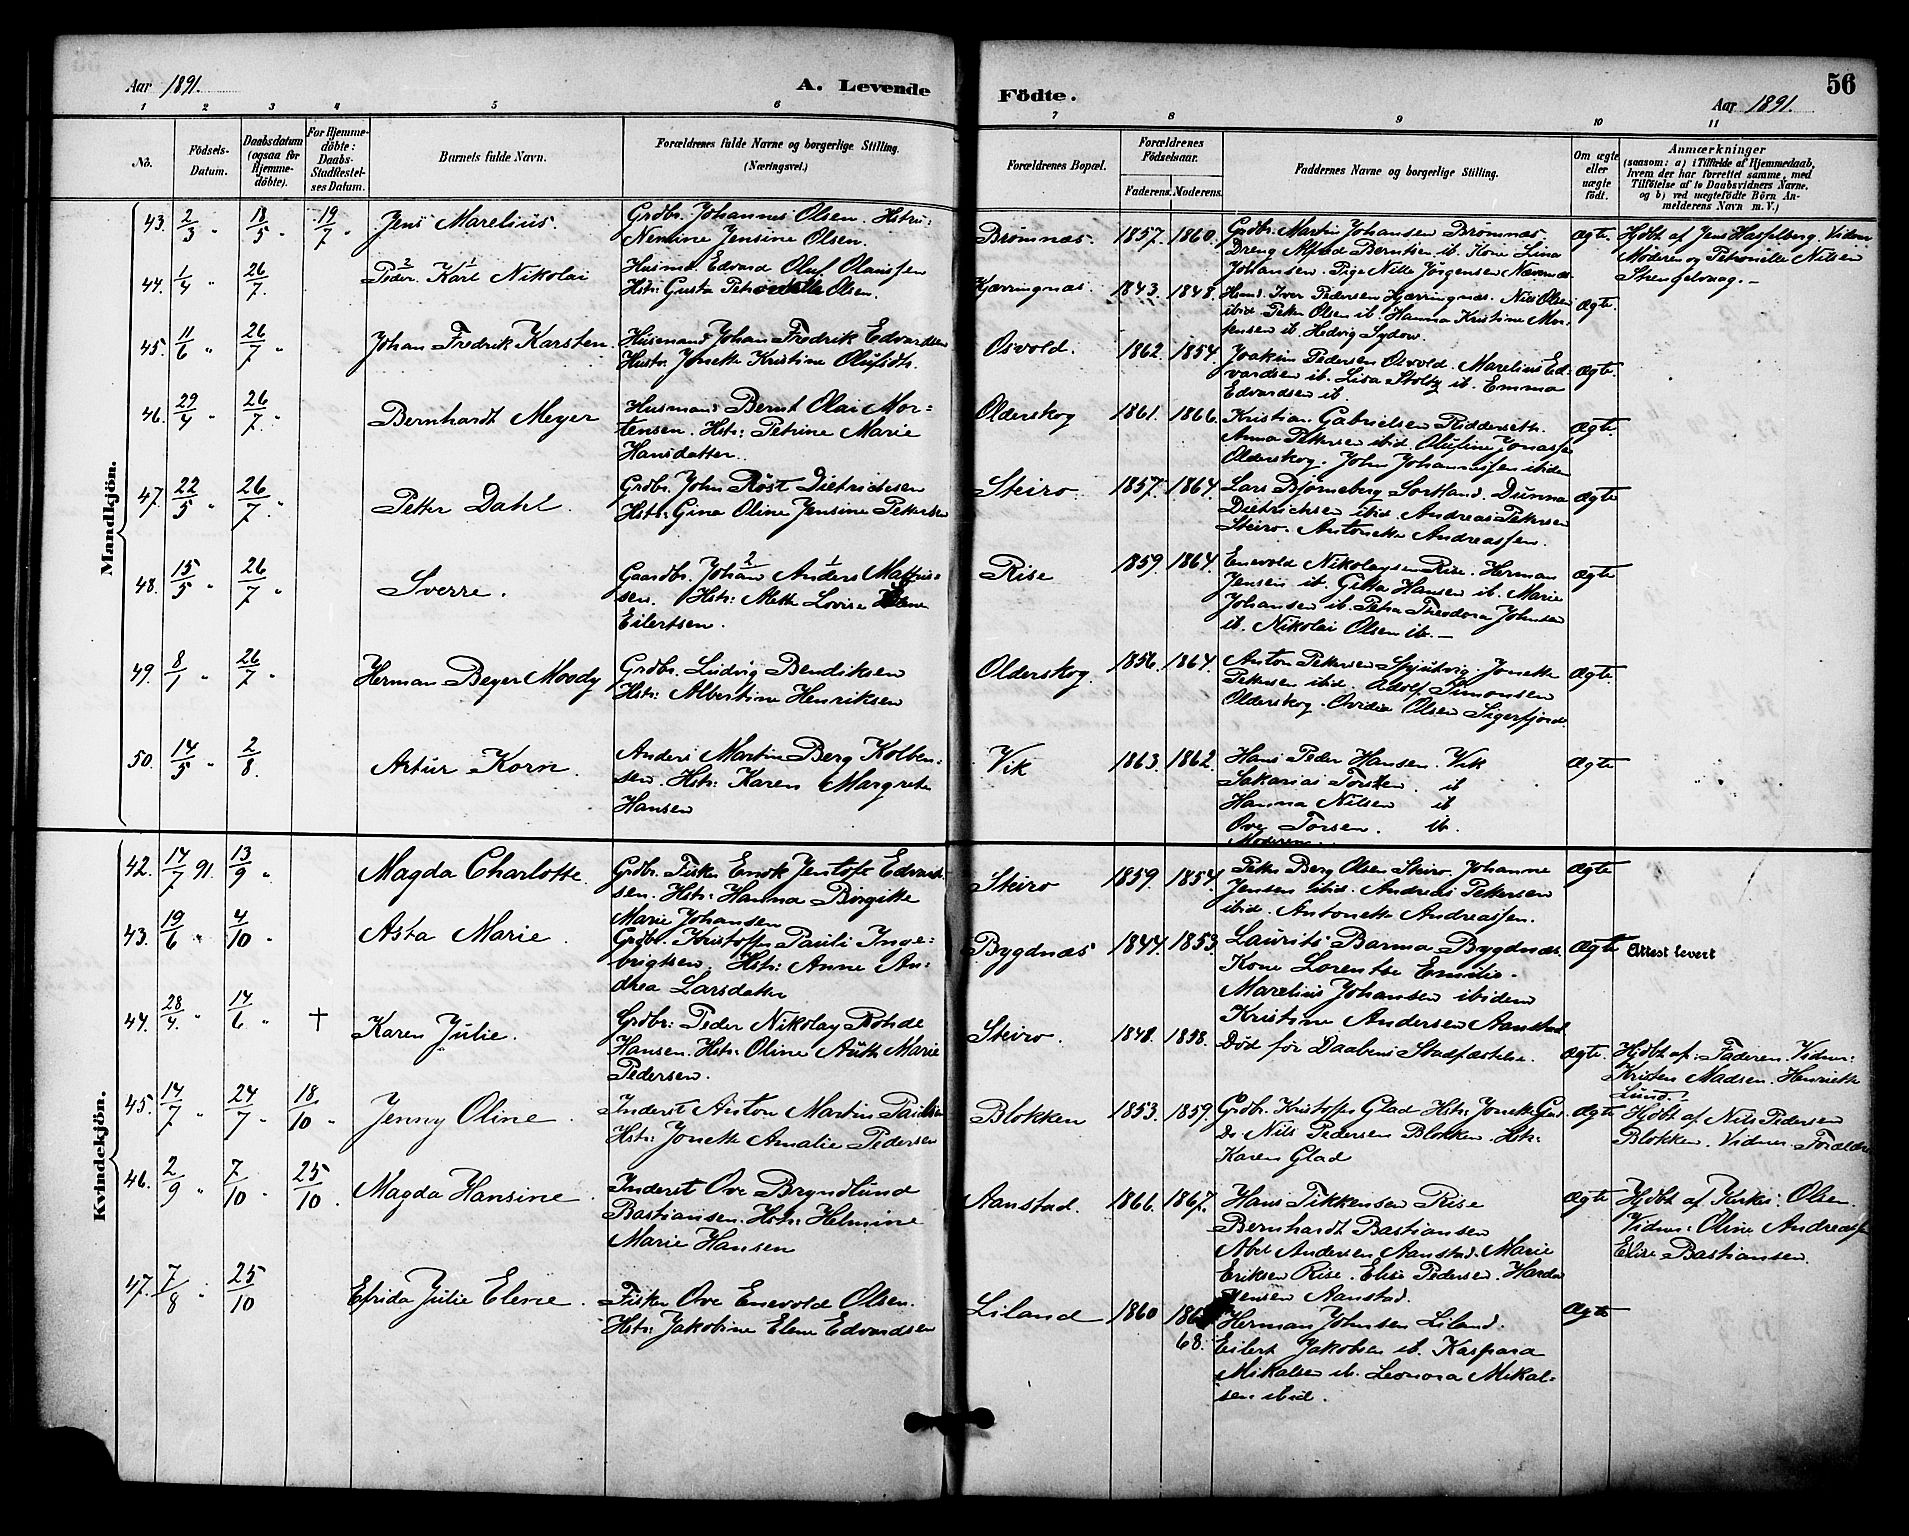 56
Aar 1891.
A. Levende Födte.
Aar 1891.
1 2 3 4 5 6 7 8 9 10 11
No.
Födsels-Datum.
Daabsdatum (ogsaa for Hjemmedöbte).
For Hjemmedöbte: Daabs-Stadfæstelses Datum.
Barnets fulde Navn.
Forældrenes fulde Navne og borgerlige Stilling. (Næringsvei.)
Forældrenes Bopæl.
Forældrenes Födselsaar.
Faderens. Moderens.
Faddernes Navne og borgerlige Stilling.
Om ægte eller uægte födt.
Anmærkninger
(saasom: a) i Tilfælde af Hjemmedaab, hvem der har forrettet samme, med Tilföielse af to Daabsvidners Navne, og b) ved uægtefödte Börn Anmelderens Navn m. V.)
Mandkjön.
43. 2/3 " 18/5 " 19/7 " Jens Marelius. Grdbr. Johannes Olsen. Hstru:
Nemine Jensine Olsen. Brømnæs. 1857. 1860. Grdbr. Martin Johansen Brømnæs.
Dreng Alfred Berntsen ib. Kone Lina
Johansen. Pige Nille Jørgensen
Ægte. Hjdbt af Jens Hasselberg. Vidner
Moderen og Petronelle Nilsen
Strengelvaag.
44. 1/4 " 26/7. Peder 2 Karl 1 Nikolai Husmd. Edvard Oluf Olaussen
Hstr: Gusta Petronelle Olsen. Kjærringnæs. 1843. 1848. Husmd. Iver Pedersen Kjærringnæs. Nils Olsen
ibid. Peter Olsen ib. Hanna Kristine Mor-
tensen ib. Hedvig Sydow. Ægte.
45. 11/6 " 26/7 " Johan Fredrik Karsten. Husmand Johan Fredrik Edvardsen
Hustr. Jonette Kristine Olufsdtr. Osvold. 1862. 1854. Joakim Pedersen Osvold. Marelius Ed-
vardsen ib. Lisa Stoltz ib. Emma
Edvardsen ib. Ægte.
46. 29/4 " 26/7. " Bernhardt Meyer Husmand Bernt Olai Mor-
tensen. Hstr: Petrine Marie
Hansdatter. Olderskog 1861. 1866. Kristian Gabrielsen Ridderseth.
Anna Pettersen ibid. Olufine Jonassen
Olderskog. John Johannessen ibidem Ægte.
47. 22/5 " 26/7 " Petter Dahl. Grdbr. John Röst Dietrichsen
Hstr: Gina Oline Jensine Pettersen Steiro. 1857. 1864. Lars Bjørneberg Sortland. Dunna
Dietrichsen ibid. Andreas Pettersen
Steiro. Antonette Andreassen. Ægte
48. 15/5 " 26/7 " Sverre. Gaardbr. Johan 2 Anders 1 Mathis-
sen. Hstr: Mette Lovise
Eilertsen. Rise 1859. 1864. Enevold Nikolaysen Rise. Herman
Jensen ib. Gitta Hansen ib. Marie
Johansen ib. Petra Theodora Johnsen
ib. Nikolai Olsen ib. Ægte
49. 8/1 " 26/7 " Herman Beyer Moody Grdbr. Ludvig Bendiksen
Hstr: Albertine Henriksen Olderskog. 1856. 1864. Anton Pettersen Spjutvig. Jonette
Pettersen ibid. Adolf Simonsen
Olderskog. Ovidia Olsen Sigerfjord Ægte.
50. 14/5 " 2/8. Artur Korn. Anders Martin Berg Kolben-
sen. Hstr: Karen Margrete
Hansen Vik 1863. 1862. Hans Peder Hansen. Vik
Sakarias Torsten. ib
Hanna Nilsen ib
Ove Torsen. ib.
Moderen. Ægte
Kvindekjön.
42. 14/7 91. 13/9 " Magda Charlotte. Grdbr. Fisker Enok Jentoft Edvard-
sen. Hstr: Hanna Birgitte
Marie Johansen Steiro 1859. 1854. Petter Berg Olsen Steiro. Johanne
Jensen ibid. Andreas Pettersen
ibid. Antonette Andreassen. Ægte
43. 19/6 " 4/10 " Asta Marie. Grdbr. Kristoffer Pauli Inge-
brigtsen. Hstr: Anne An-
drea Larsdatter Bygdnæs 1844. 1853. Laurits Barma Bygdnæs.
Kone Lorentse Emilie.
Marelius Johansen ibidem
Kristine Andersen Aanstad Ægte Attest levert
44. 28/4. " 14/6 " † Karen Julie. Grdbr: Peder Nikolay Rohde
Hansen. Hstr: Oline Marie
Pedersen. Steiro. 1848. 1858. Død før Daabens Stadfæstelse. Ægte. Hjdbt af: Faderen. Vidner:
Kristen Madsen. Henriette
Lund.
45. 14/7 " 24/7 " 18/10 " Jenny Oline. Inderst Anton Martin
Hstr: Jonette Amalie Pedersen Blokken 1853. 1859. Grdbr. Kristoffer Glad Hstr: Jonette Glad
Do Nils Pedersen Blokken. Hstr:
Karen Glad Ægte Hjdbt af Nils Pedersen
Blokken. Vidner. Foræld
46. 2/9 " 7/10 " 25/10. Magda Hansine. Inderst Ove Bryndlund
Bastiansen. Hstr: Helmine
Marie Hansen Aanstad. 1866. 1867. Hans Fikkensen Rise
Bernhardt Bastiansen
Abel Andersen Aanstad. Marie
Eriksen Rise. Elise Pedersen.
Jensen Aanstad. Ægte Hjdbt af Kirkes: Olsen.
Vidner: Oline Andreassen
Elise Bastiansen.
47. 7/8 " 25/10 Efrida Julie Elene. Fisker Ove Enevold Olsen.
Hstr: Jakobine Elene Edvardsen Liland 1860 68. Herman Johnsen Liland.
Eilert Jakobsen ib. Kaspara
Mikalsen ib. Leonora Mikal-
sen ibid. Ægte